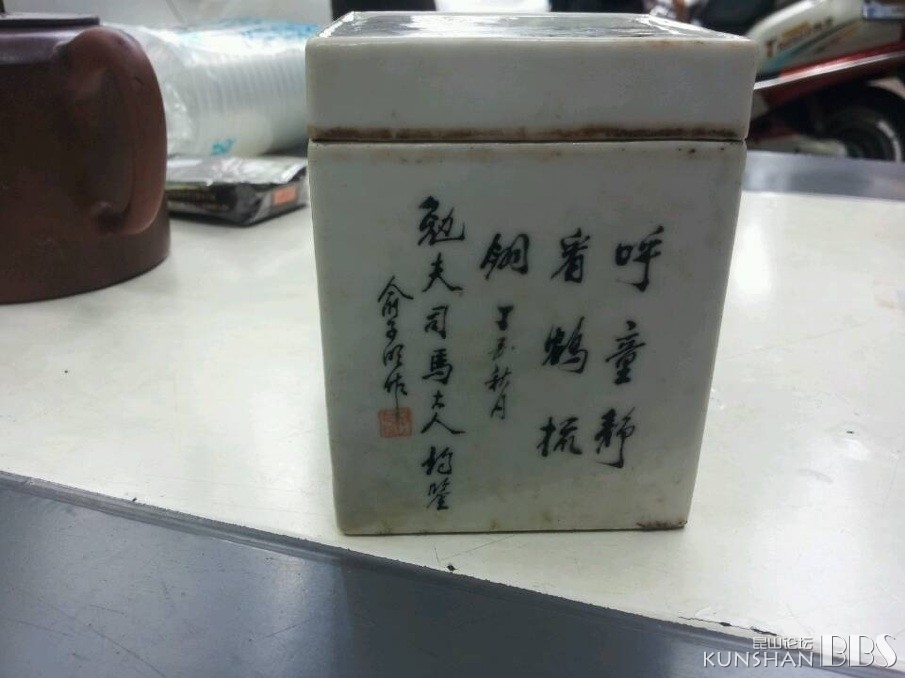 呼童靜
看鶴梳
翎
丁丑秋月
勉夫司馬大人均鑒
俞子明作
昆山论坛
KUNSHAN BBS